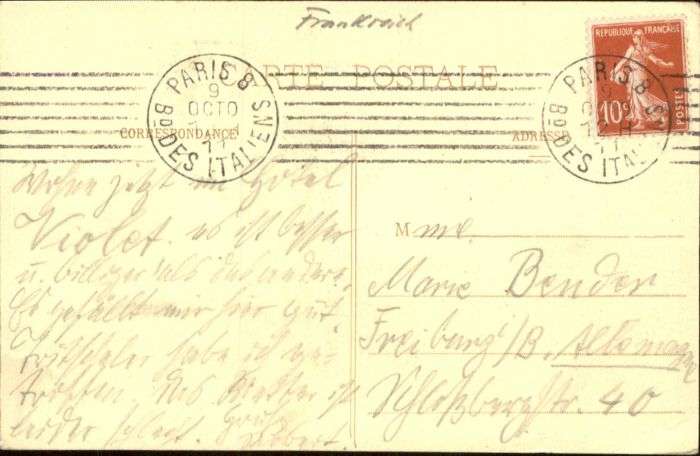 Frankreich
CARTE POSTALE
REPUBLIQUE FRANÇAISE
10c
POSTES
PARIS 8
9
OCTO
11
Bd DES ITALIENS
PARIS 8
9
Bd DES ITAL
CORRESPONDANCE
ADRESSE
Wohne jetzt im Hotel
Violet. es ist besser
u. billiger als das andere.
Es gefällt mir hier gut.
habe ich ge-
troffen. Das Wetter ist
leider schlecht. Gruß
Robert.
Mme.
Marie Bender
Freiburg i/B. Allemagne
Schloßbergstr. 40